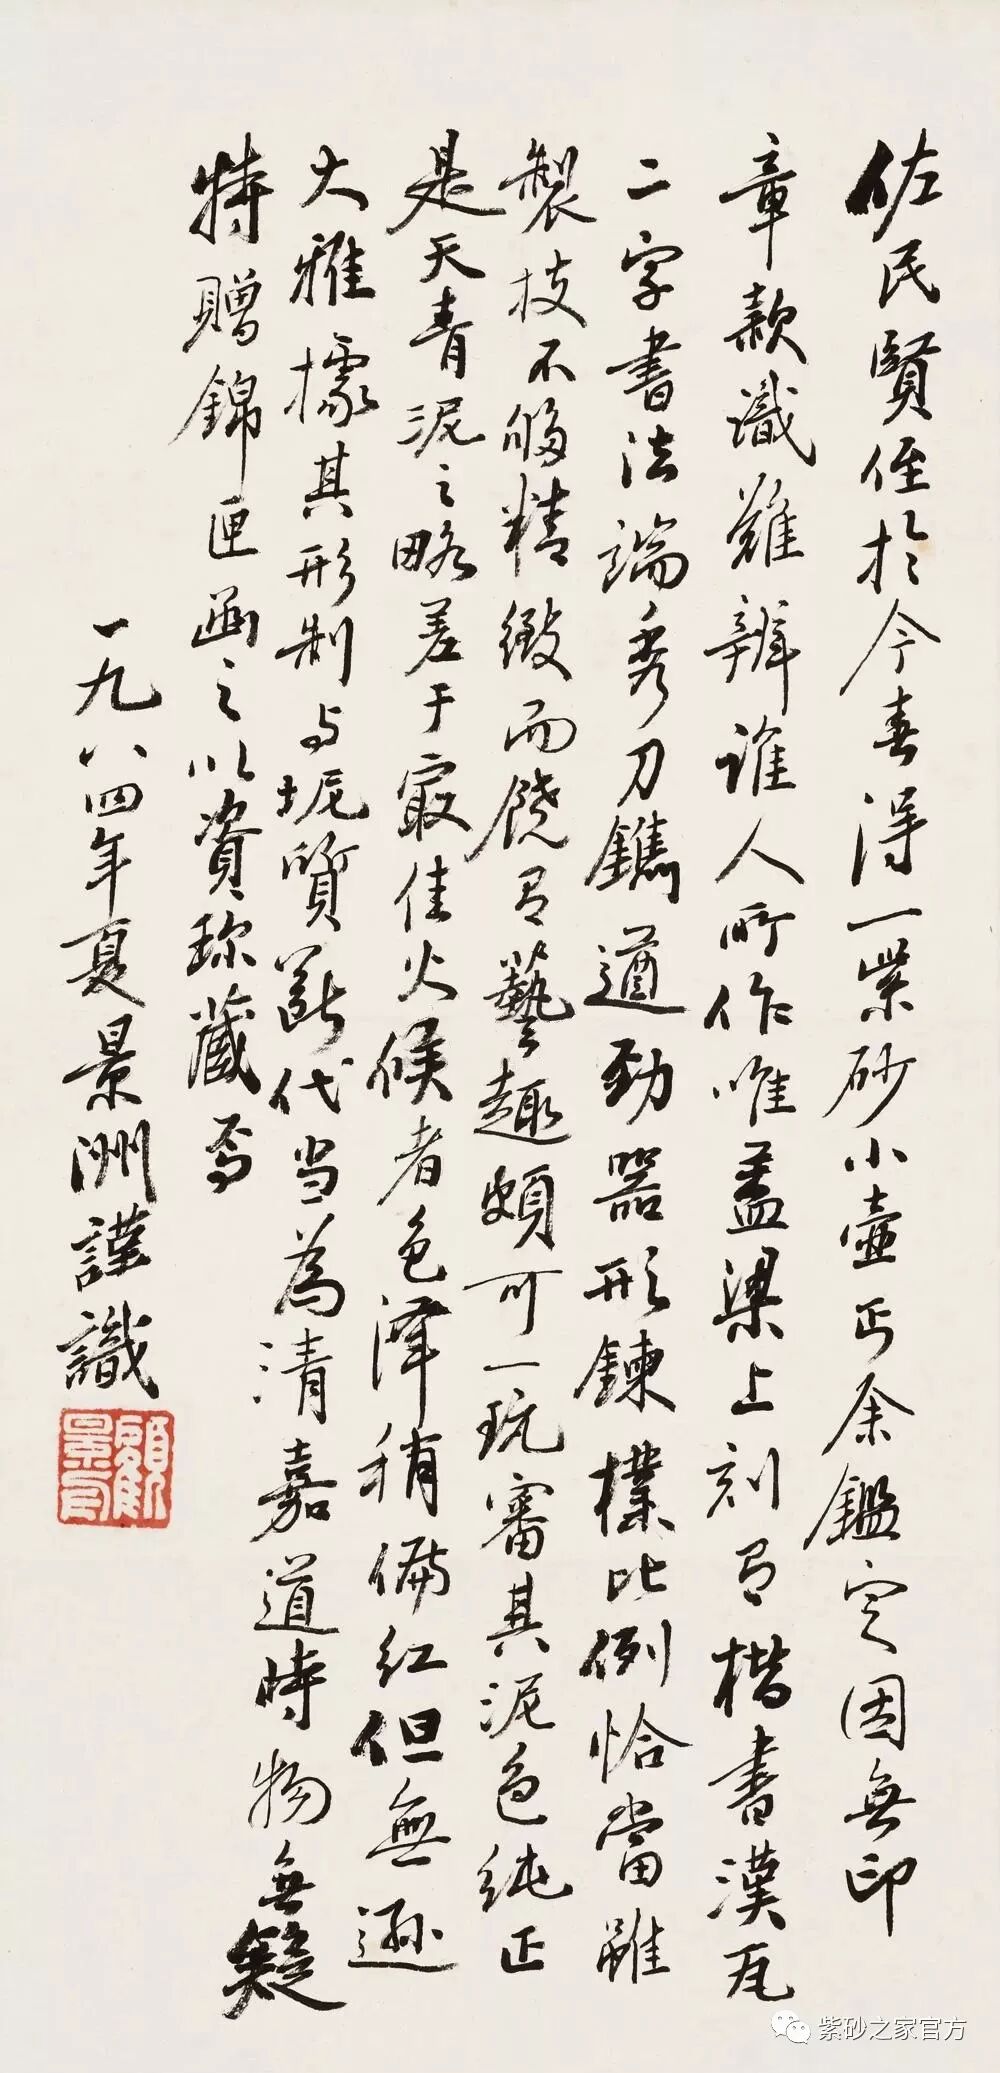 佐民賢侄於今春得一紫砂小壺丐余鑑定因無印
章款識難辨誰人所作唯蓋梁上刻有楷書漢瓦
二字書法端秀刀鐫遒勁器形鍊樸比例恰當雖
製技不够精緻而饒有藝趣頗可一玩審其泥色純正
是天青泥之略差于最佳火候者色澤稍偏紅但無遜
大雅據其形制与坭質斷代当為清嘉道時物無疑
特贈錦匣函之以資珍藏焉
一九八四年夏景洲謹識
顧景舟
紫砂之家官方